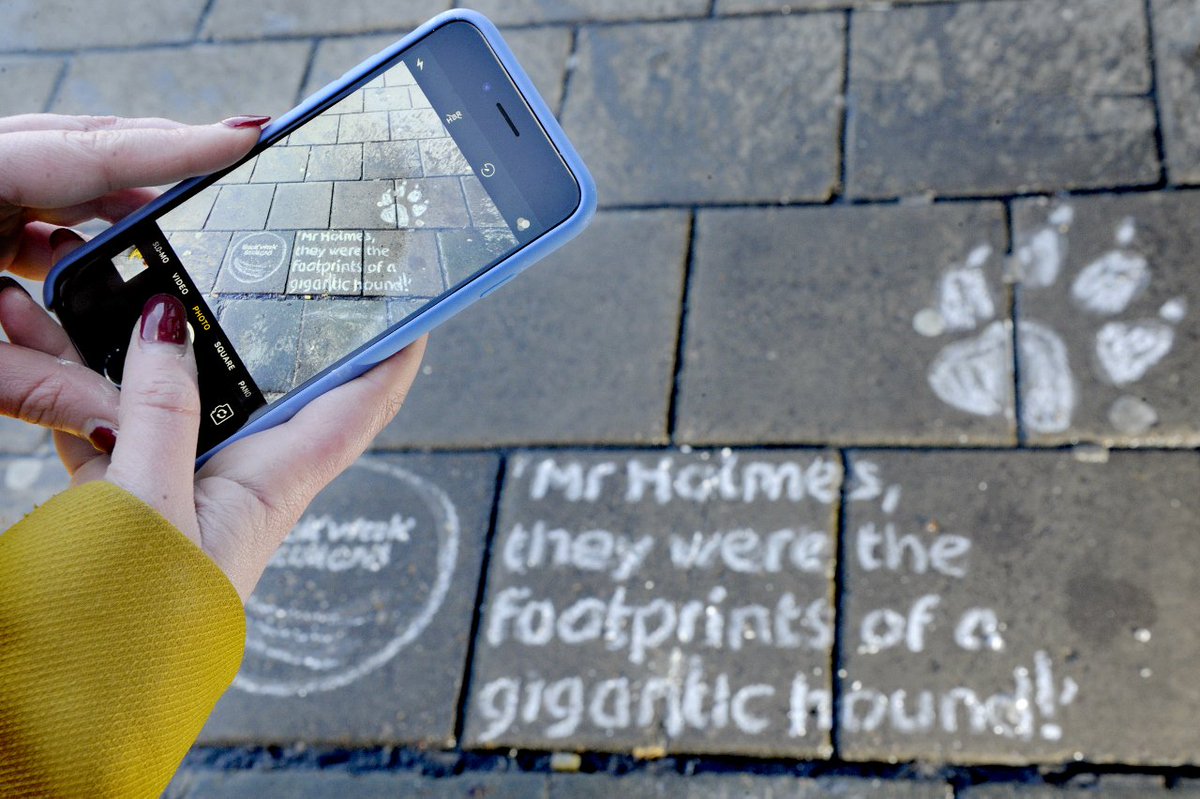 HDR
SLO-MO
VIDEO
PHOTO
SQUARE
PANO
Book week
Scotland
Mr Holmes,
they were the
footprints of a
gigantic hound!'
'Mr Holmes,
they were the
footprints of a
gigantic hound!'